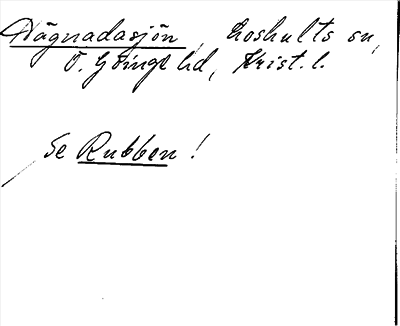 Hägnadasjön, Loshults sn,
Ö. Göinge hd, Krist. l.
Se Rubben!